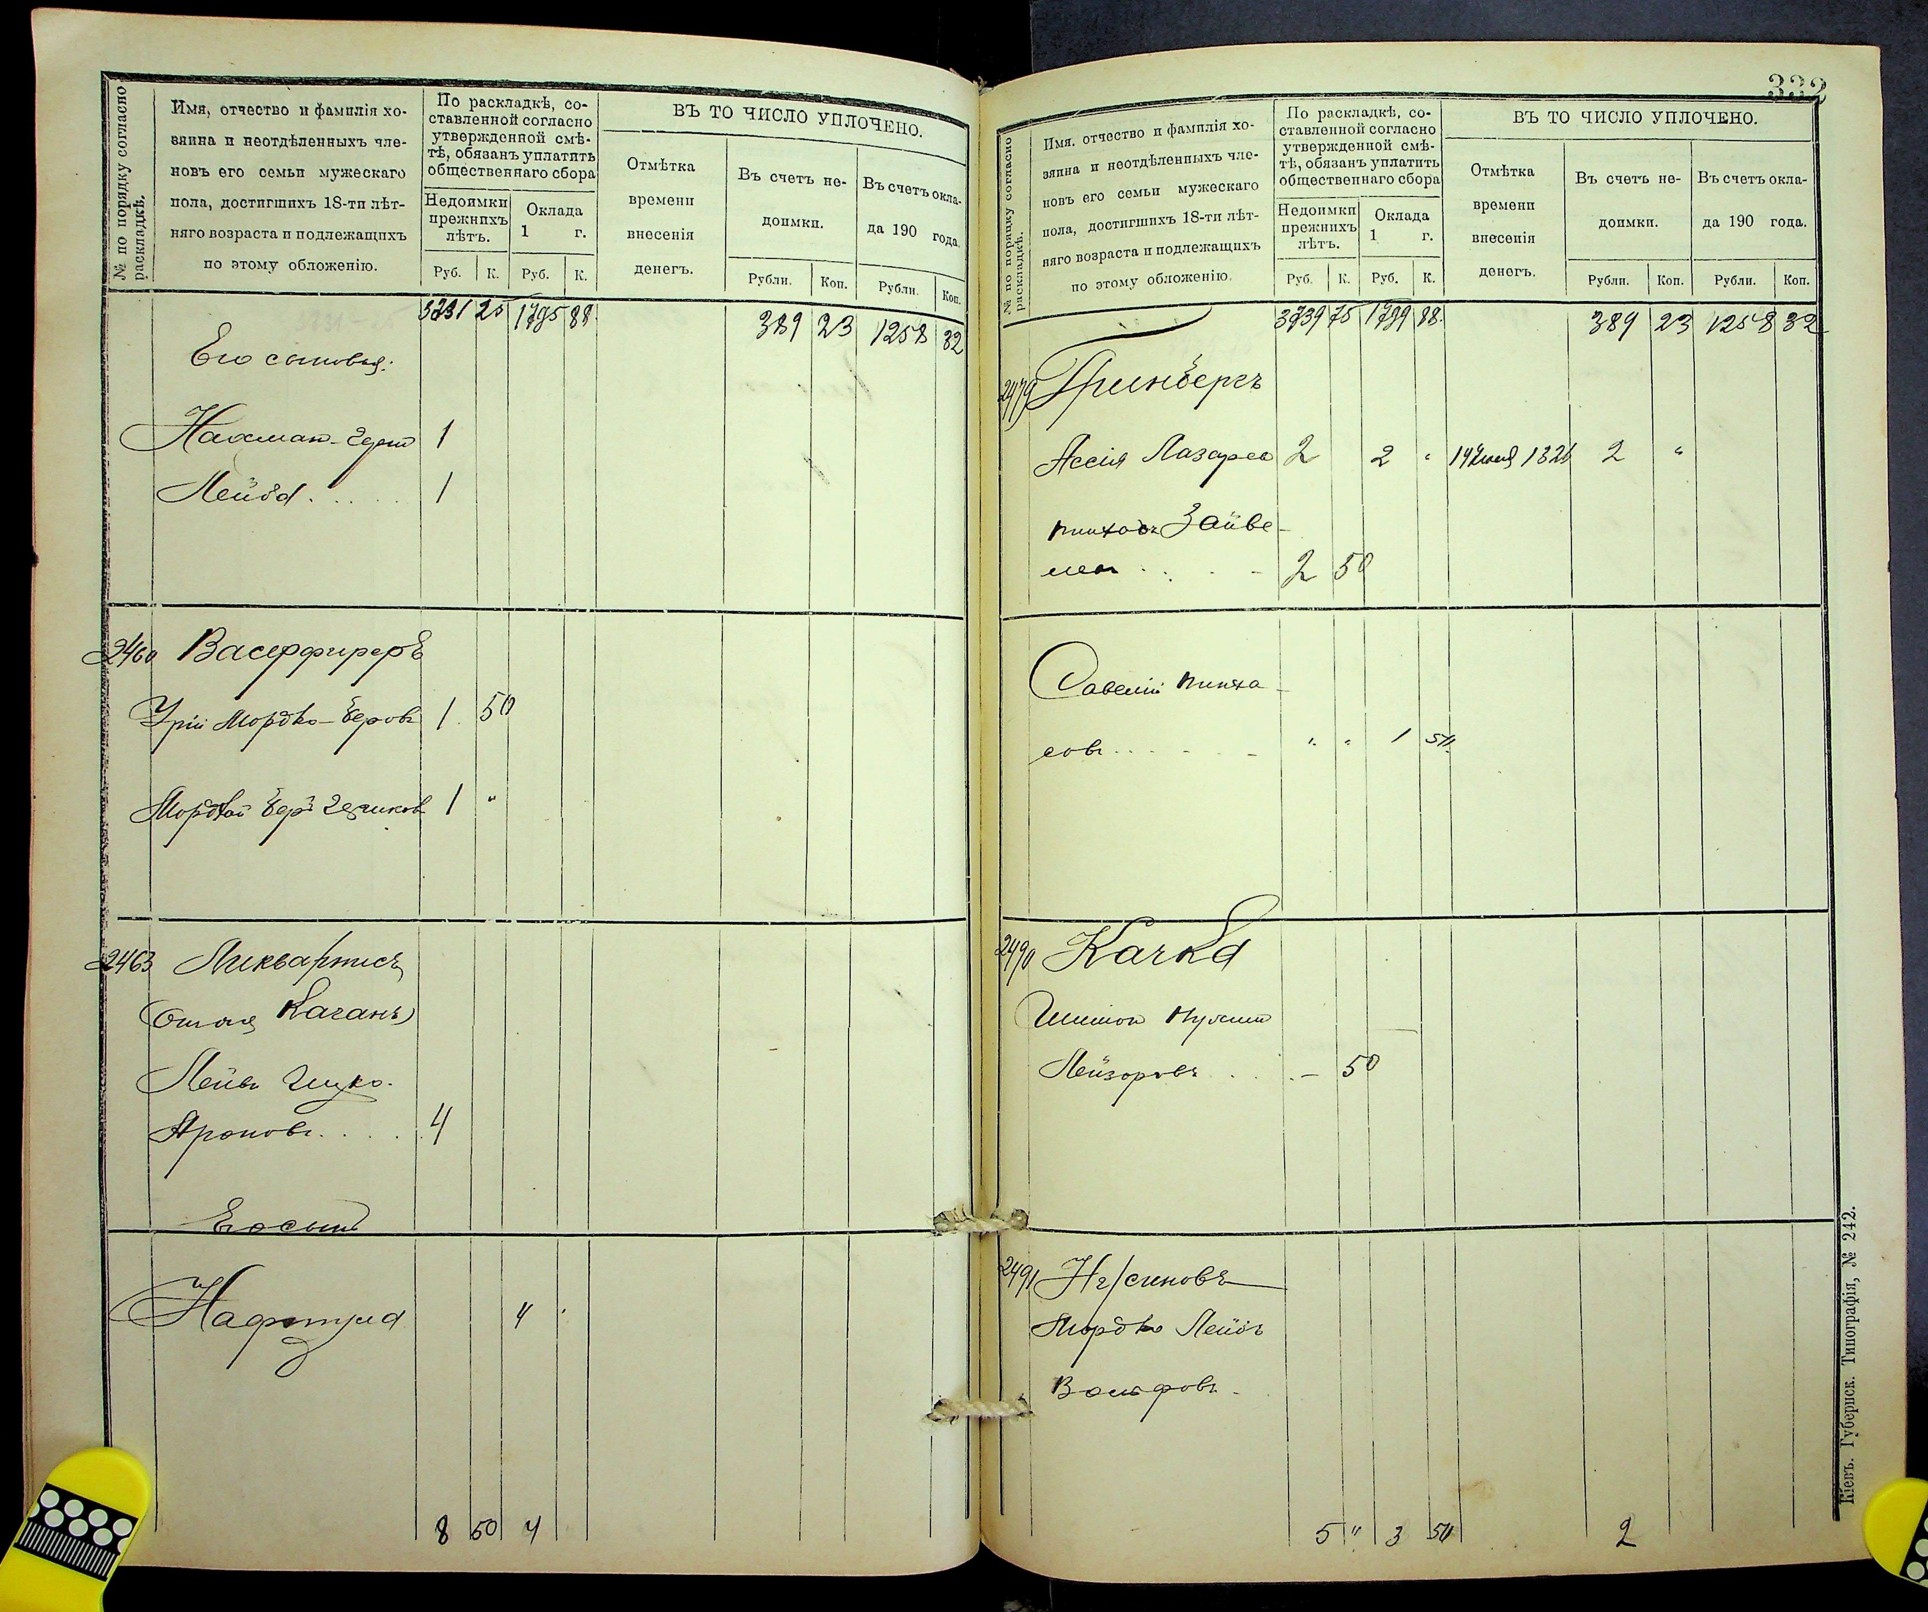 № по порядку согласно раскладкѣ.
Имя, отчество и фамилія хо-
зяина и неотдѣленныхъ чле-
новъ его семьи мужескаго
пола, достигшихъ 18-ти лѣт-
няго возраста и подлежащихъ
по этому обложенію.
По раскладкѣ, со-
ставленной согласно
утвержденной смѣ-
тѣ, обязанъ уплатить
общественнаго сбора
Недоимки
прежнихъ
лѣтъ.
Оклада
1 г.
Руб. К. Руб. К.
ВЪ ТО ЧИСЛО УПЛОЧЕНО.
Отмѣтка
времени
внесенія
денегъ.
Въ счетъ не-
доимки.
Въ счетъ окла-
да 190 года.
Рубли. Коп. Рубли. Коп.
3731 25 1795 88 389 23 1258 32
Его сыновья:
Нахман- 1
Лейба 1
2460 Васерфиреръ
Урій Мордко-Беровъ 1 50
Мордко Беръ 1 "
2463 Ликвартисъ
(онъ же Каганъ)
Лейба Ицко-
Ароновъ 4
Его сынъ
Нафтула 4
8 50 4
332
№ по порядку согласно раскладкѣ.
Имя, отчество и фамилія хо-
зяина и неотдѣленныхъ чле-
новъ его семьи мужескаго
пола, достигшихъ 18-ти лѣт-
няго возраста и подлежащихъ
по этому обложенію.
По раскладкѣ, со-
ставленной согласно
утвержденной смѣ-
тѣ, обязанъ уплатить
общественнаго сбора
Недоимки
прежнихъ
лѣтъ.
Оклада
1 г.
Руб. К. Руб. К.
ВЪ ТО ЧИСЛО УПЛОЧЕНО.
Отмѣтка
времени
внесенія
денегъ.
Въ счетъ не-
доимки.
Въ счетъ окла-
да 190 года.
Рубли. Коп. Рубли. Коп.
3739 75 1799 88 389 23 1258 32
2479 Гринбергъ
Ассія Лазарев 2 2 " 2 "
Пинхосъ Зайве-
лев 2 50
Савелій Пинха-
совъ " " 1 50
2490 Качка
Шимон
Лейзоровъ - 50
2491 Нусиновъ
Мордко Лейбъ
Вольфовъ
5 " 3 50 2
Кіевъ. Губернск. Типографія, № 242.